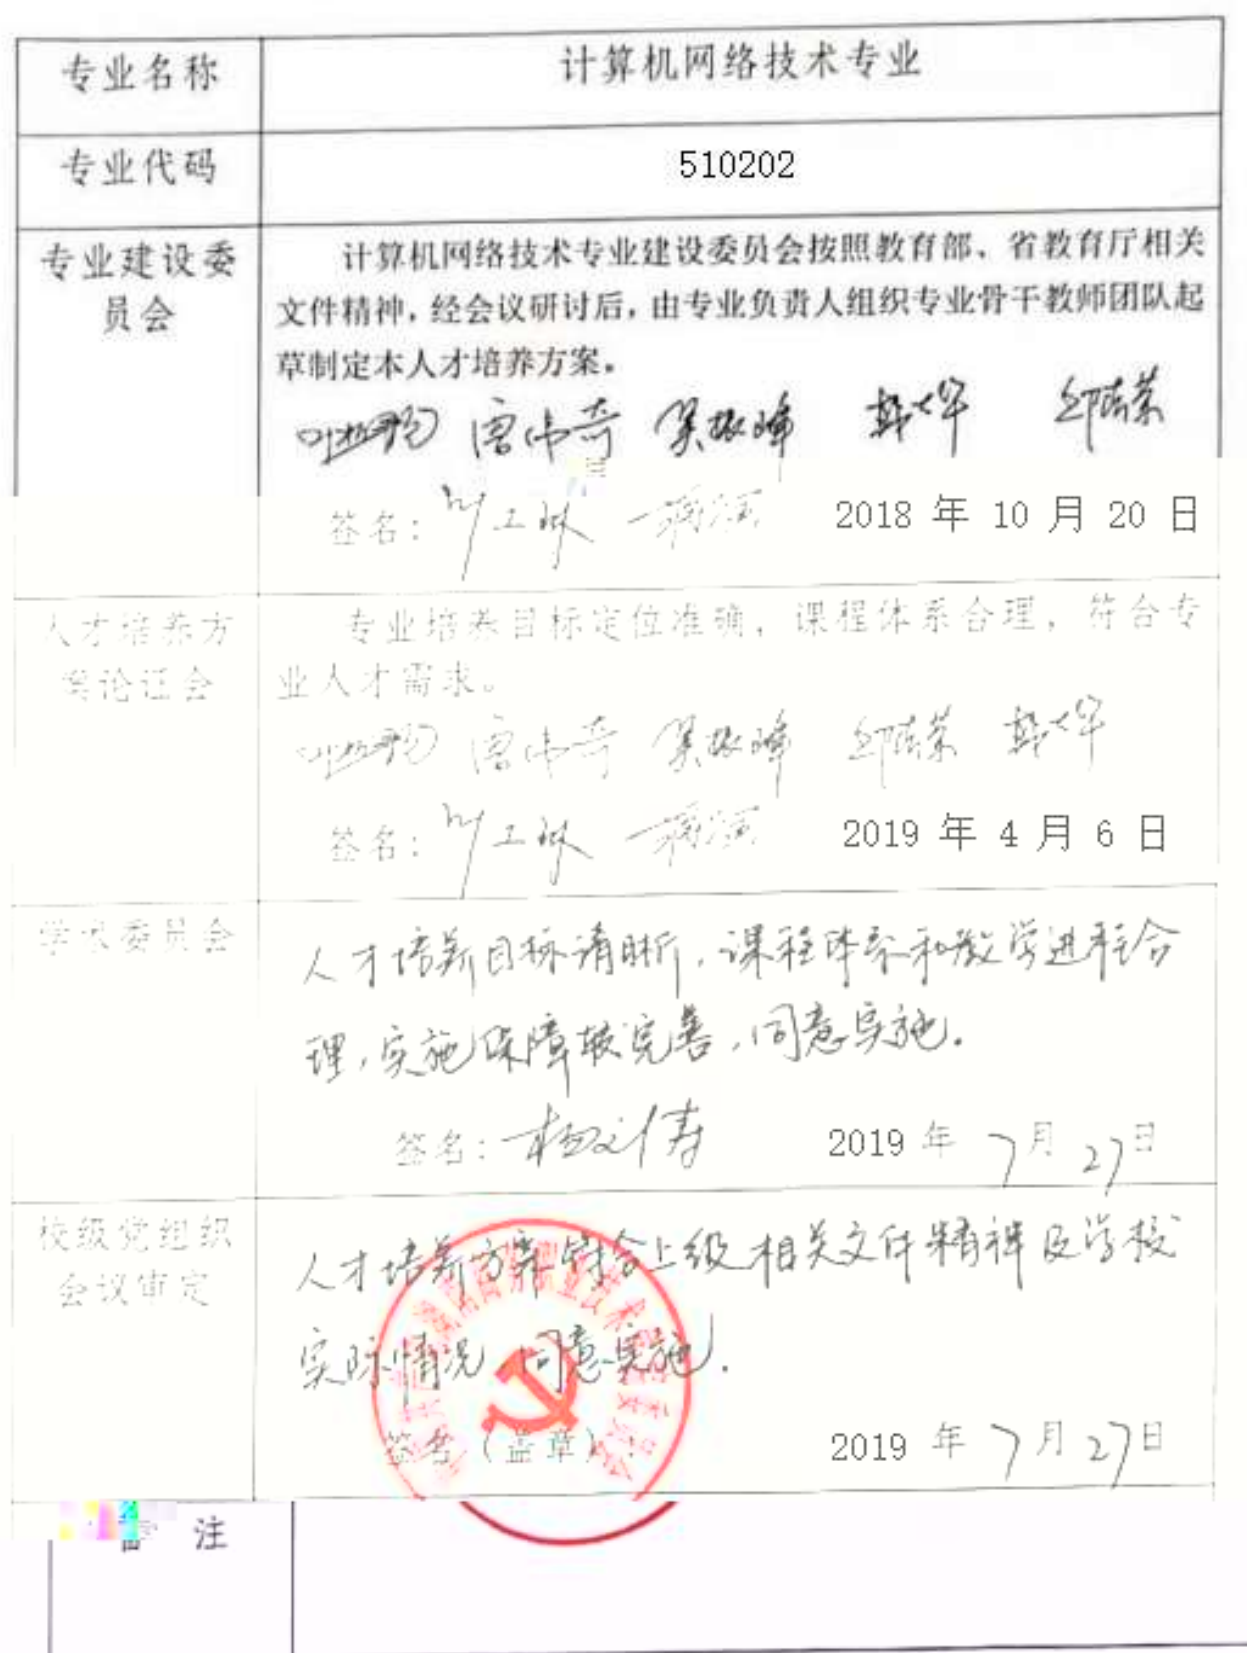 专业名称
计算机网络技术专业
专业代码
510202
专业建设委
员会
计算机网络技术专业建设委员会按照教育部、省教育厅相关
文件精神，经会议研讨后，由专业负责人组织专业骨干教师团队起
草制定本人才培养方案。
签名：
2018 年 10 月 20 日
人才培养方
案论证会
专业培养目标定位准确，课程体系合理，符合专
业人才需求。
签名：
2019 年 4 月 6 日
学术委员会
人才培养目标清晰，课程体系和教学进程合
理，实施保障较完善，同意实施.
签名：
2019 年 7 月 27 日
校级党组织
会议审定
人才培养方案符合上级相关文件精神及学校
实际情况，同意实施.
签名（盖章）
2019 年 7 月 27 日
备 注